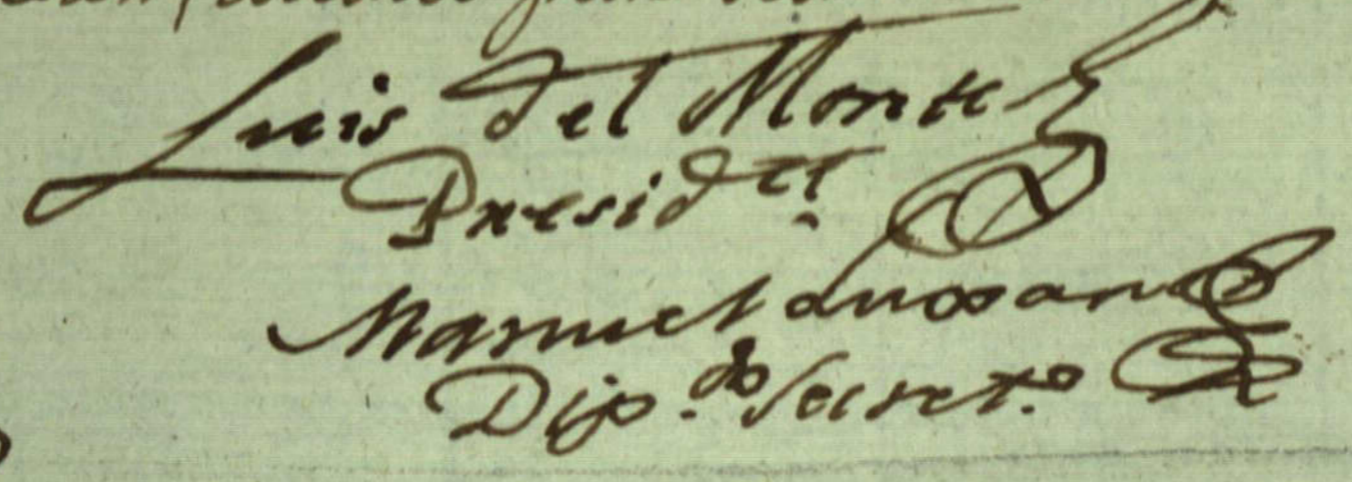 Luis del Monte
Presid.te
Manuel
Dip.do Secret.o